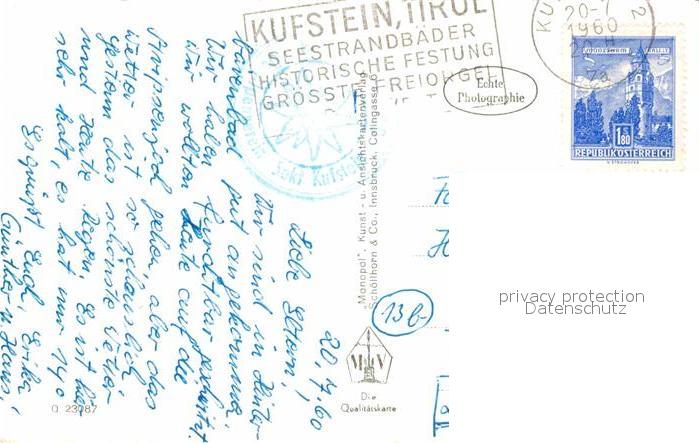 KUFSTEIN, TIROL
SEESTRANDBÄDER
HISTORISCHE FESTUNG
GRÖSSTE FREIORGEL
20-7
1960
Echte
Photographie
1.80
REPUBLIK ÖSTERREICH
20.7.60
Liebe Eltern,
Wir sind in Hinter-
bärenbad gut angekommen.
Wir haben furchtbar geschwitzt.
Wir wollten heute auf die
gehen, aber das
Wetter ist so schauslich
gestern das schönste Wetter
und heute Regen. Es ist hier
sehr kalt, es hat nur 14°
Es grüsst Euch, Erika,
Günther u. Hans,
Sekt. Kufstein
"Monopol", Kunst- u. Ansichtskartenverlag
Schöllhorn & Co., Innsbruck, Colingasse 6
13b
M V
Die
Qualitätskarte
O 23087
privacy protection
Datenschutz